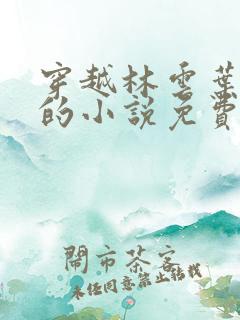 穿越林雲葉
的小說免費
鬧市茶客
未任同意禁止转载